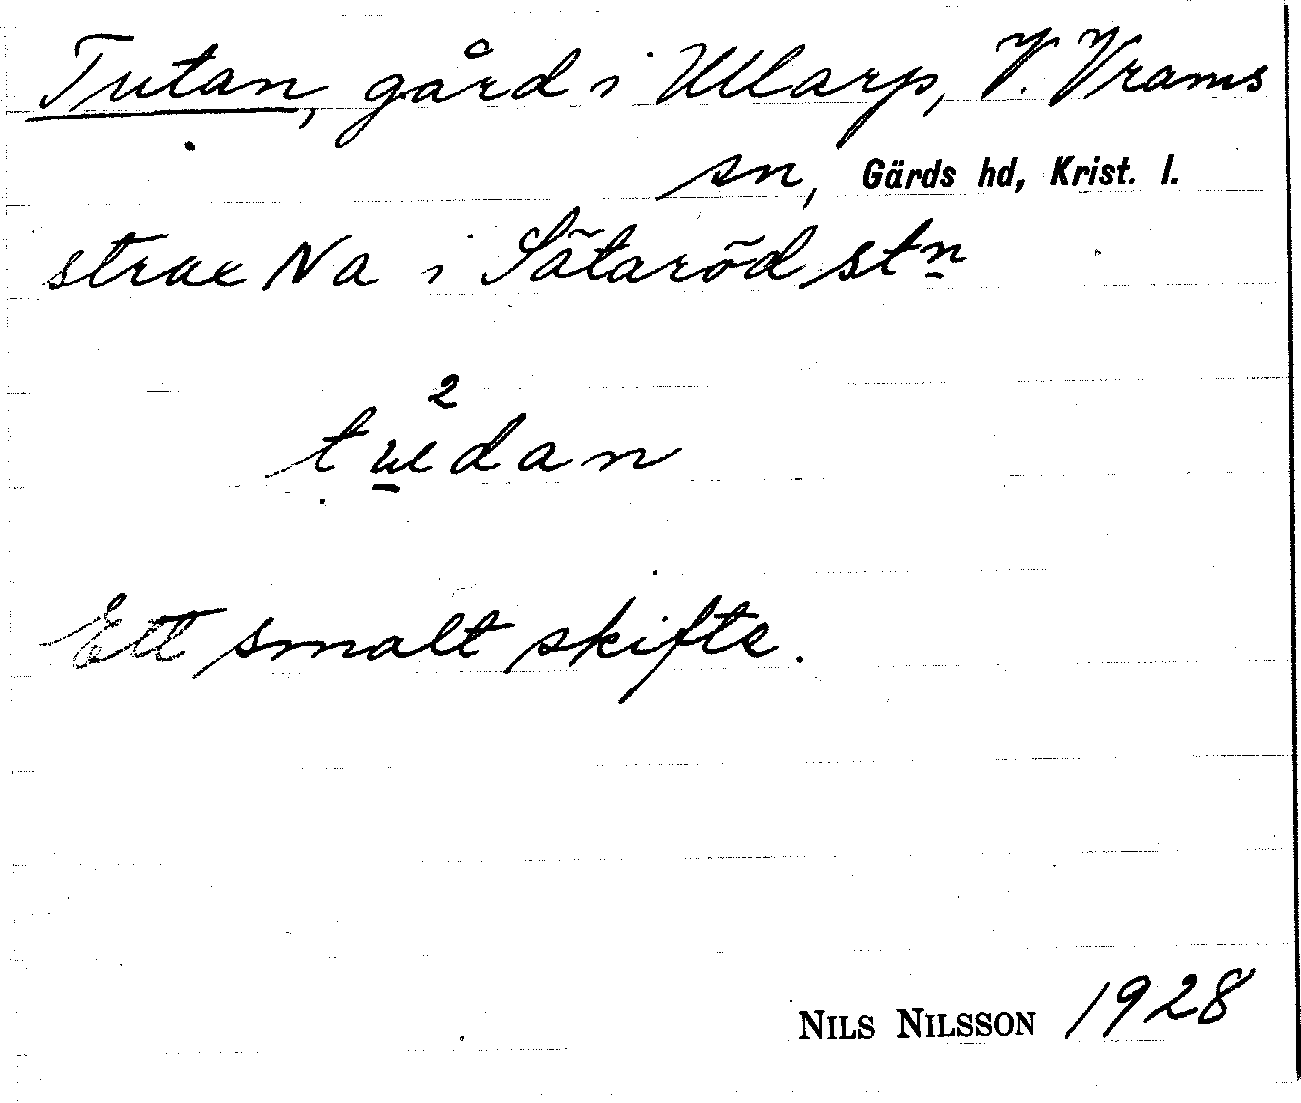 Tutan, gård i Ullarp, V. Vrams
sn, Gärds hd, Krist. l.
strax Na i Sätaröd stn
2
tuedan
Ett smalt skifte.
NILS NILSSON 1928